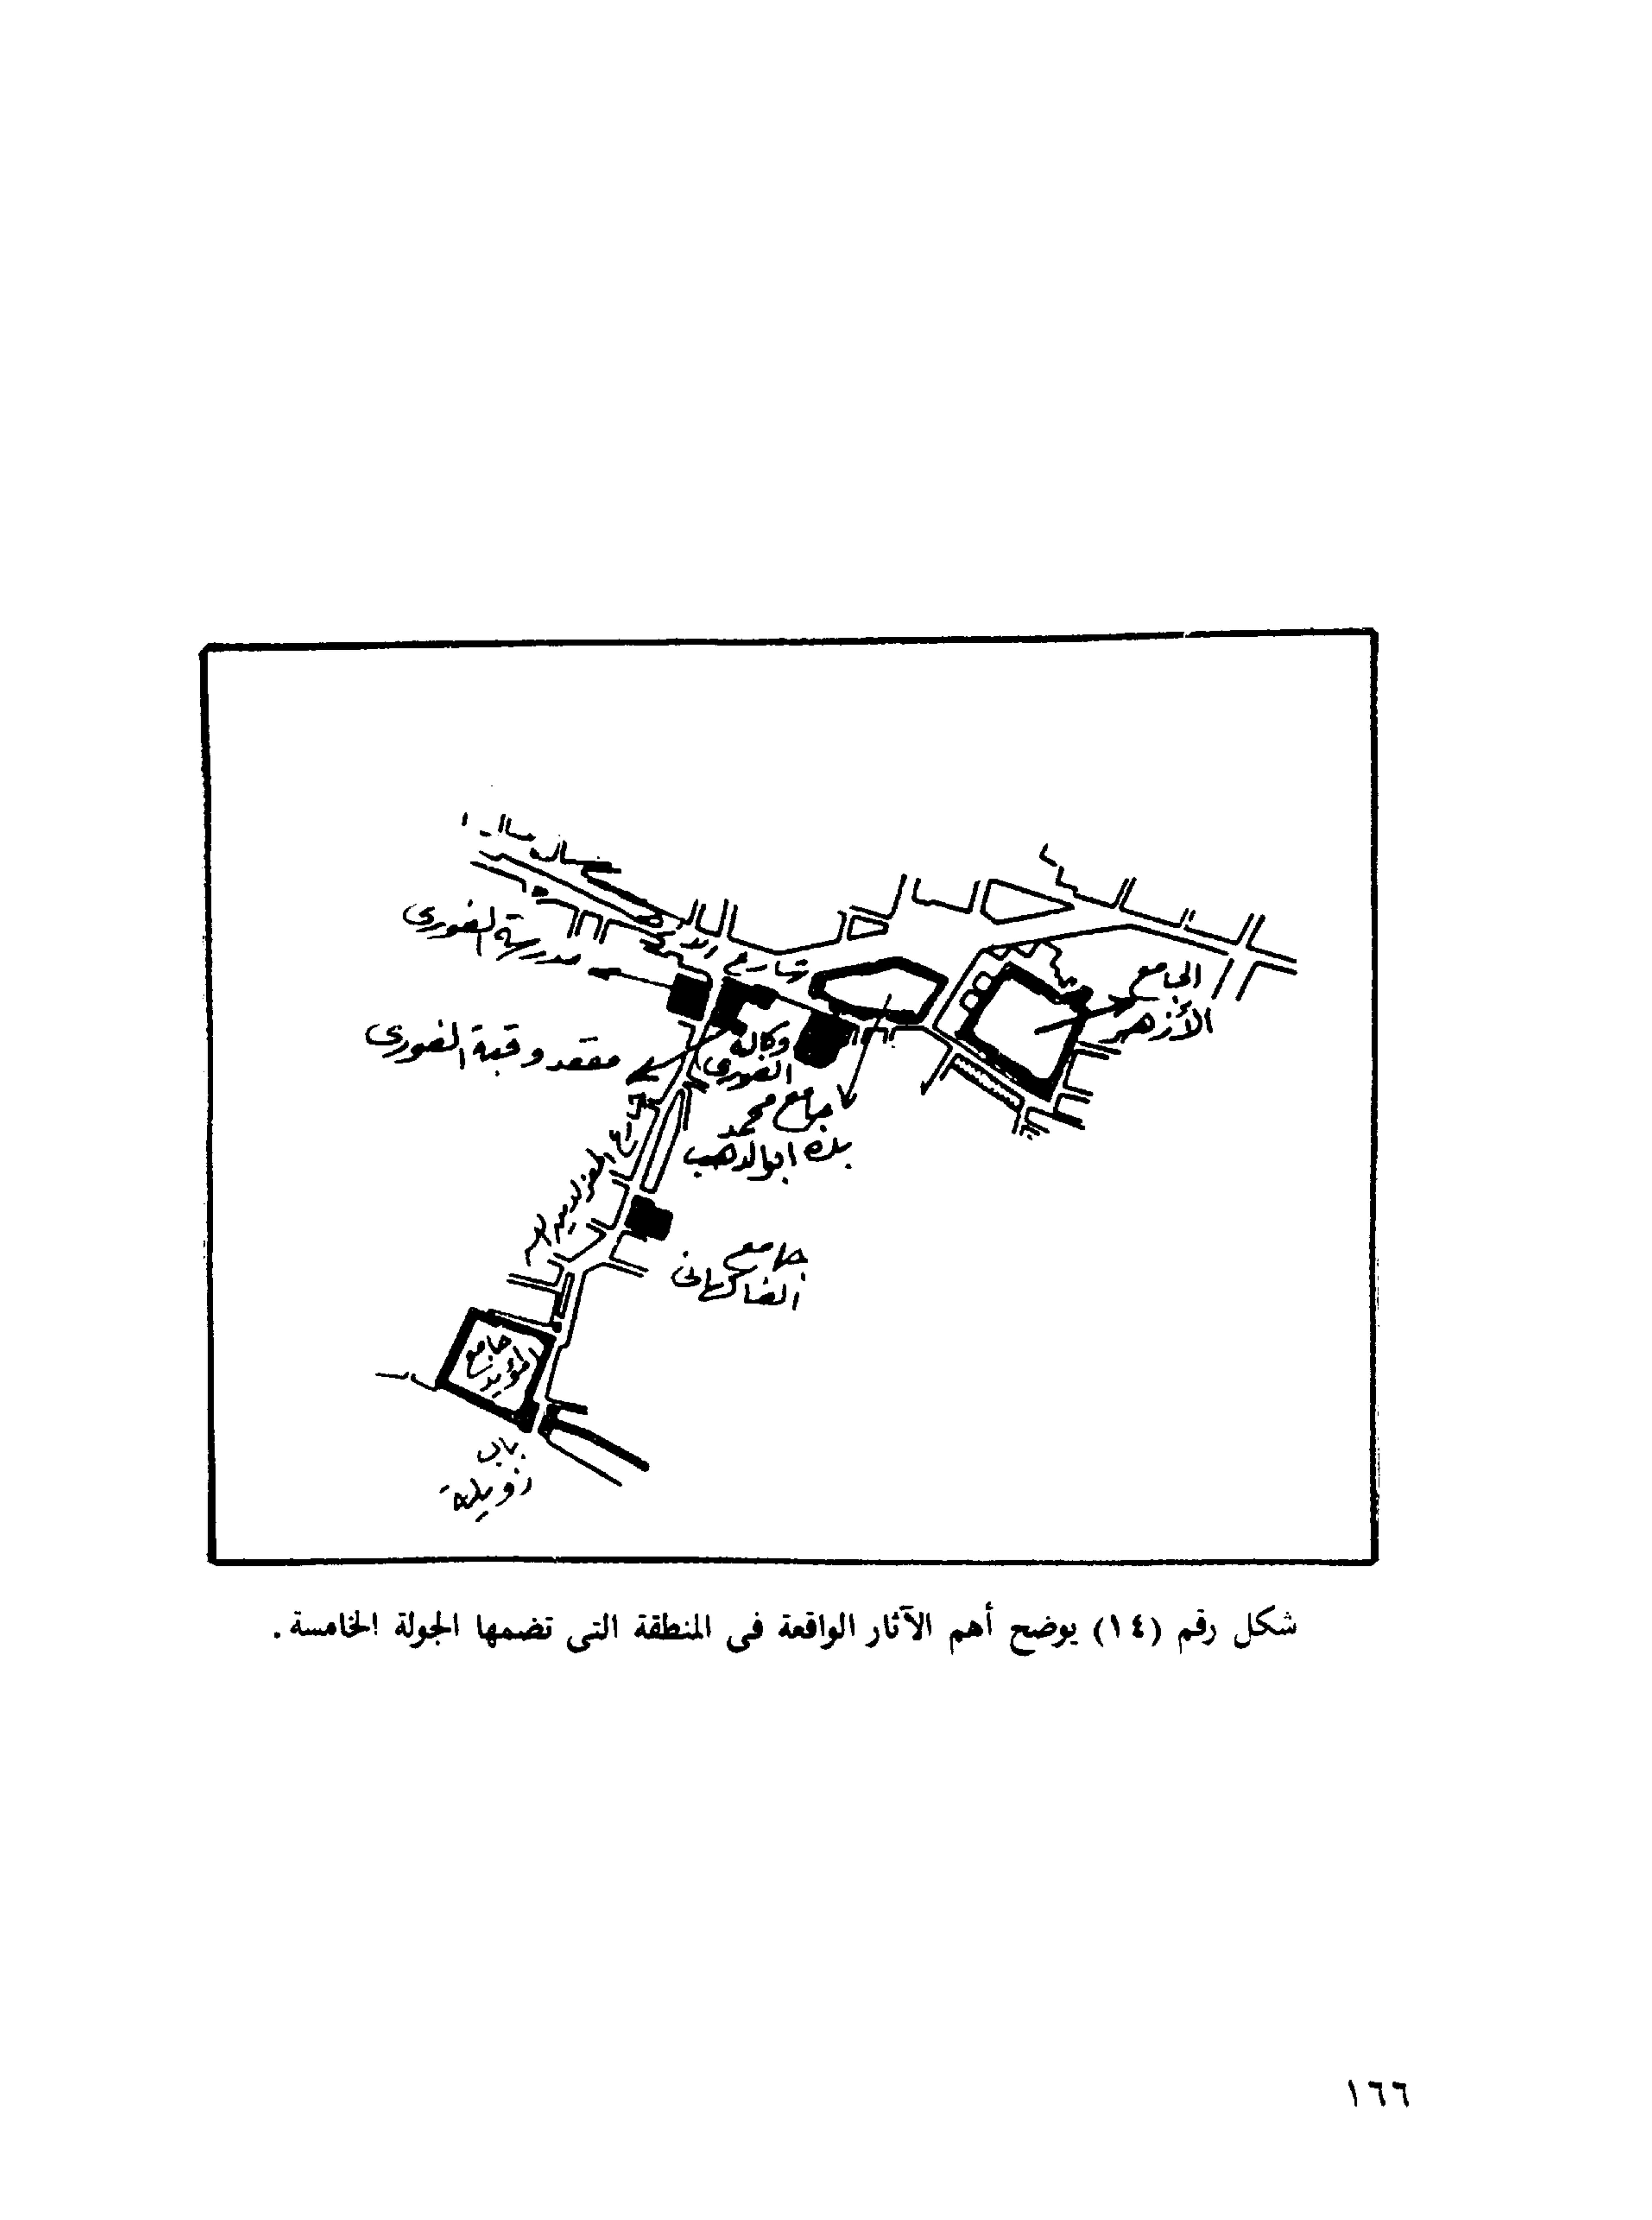 مدرسة الغورى
شارع
الجامع
الأزهر
مقعد وقبة الغورى
وكالة
الغورى
جامع محمد
بك ابو الدهب
جامع
الفاكهانى
جامع
المؤيد
باب
زويلة
شكل رقم (١٤) يوضح أهم الآثار الواقعة فى المنطقة التى تضمها الجولة الخامسة .
١٦٦